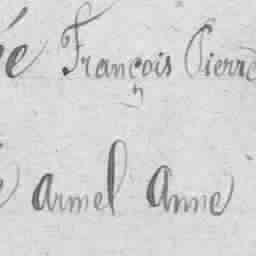 ée François Pierre
é Armel Anne